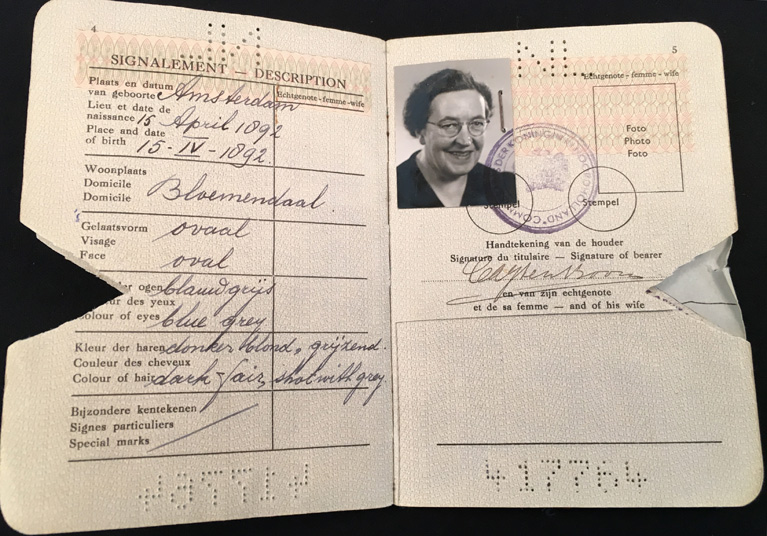 4
SIGNALEMENT — DESCRIPTION
Plaats en datum
van geboorte Amsterdam
Echtgenote - femme - wife
Lieu et date de
naissance 15 April 1892
Place and date
of birth 15 - IV - 1892.
Woonplaats
Domicile
Domicile Bloemendaal.
Gelaatsvorm ovaal
Visage
Face oval
ogen blauwgrijs
des yeux
olour of eyes blue grey
Kleur der haren donker blond, grijzend.
Couleur des cheveux
Colour of hair dark-fair, shot with grey.
Bijzondere kentekenen
Signes particuliers
Special marks
5
NL
Echtgenote - femme - wife
Foto
Photo
Foto
Stempel
Stempel
Handtekening van de houder
Signature du titulaire — Signature of bearer
en van zijn echtgenote
et de sa femme — and of his wife
417764